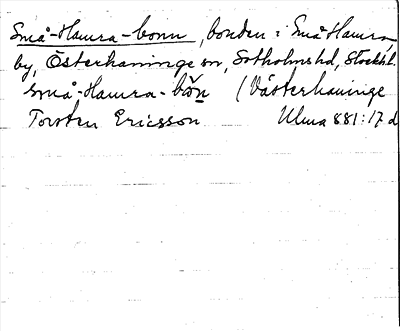 Små-Hamra-bonn, bonden i Små Hamra
by, Österhaninge sn, Sotholms hd, Stockh.l.
små-Hamra-bŏ̀n (Västerhaninge
Torsten Ericsson Ulma 881:17 d